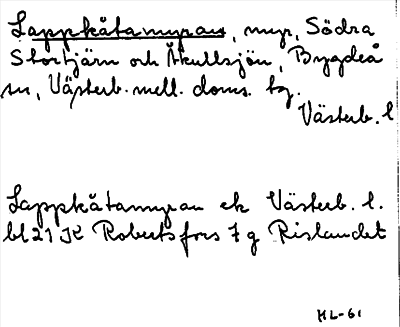 Lappkåtamyran, myr, Södra
Stortjärn och Åkullsjön, Bygdeå
sn, Västerb. mell. doms. tg.
Västerb. l
Lappkåtamyran ek Västerb. l.
bl 21 K Robertsfors 7 g Rislandet
HL-61